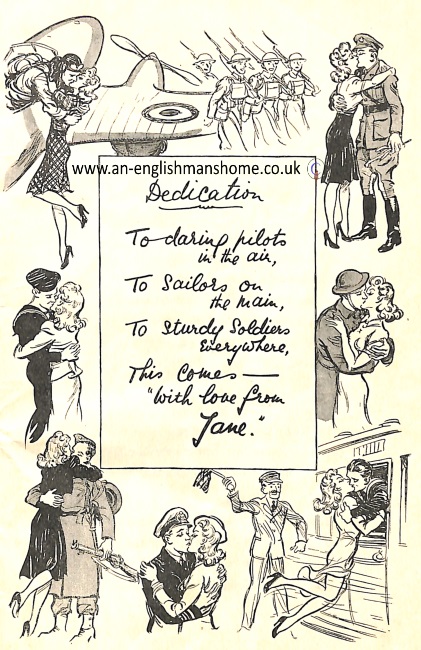 www.an-englishmanshome.co.uk ©
Dedication
To daring pilots
in the air,
To Sailors on
the main,
To Sturdy Soldiers
Everywhere,
This Comes —
"With love from
Jane."